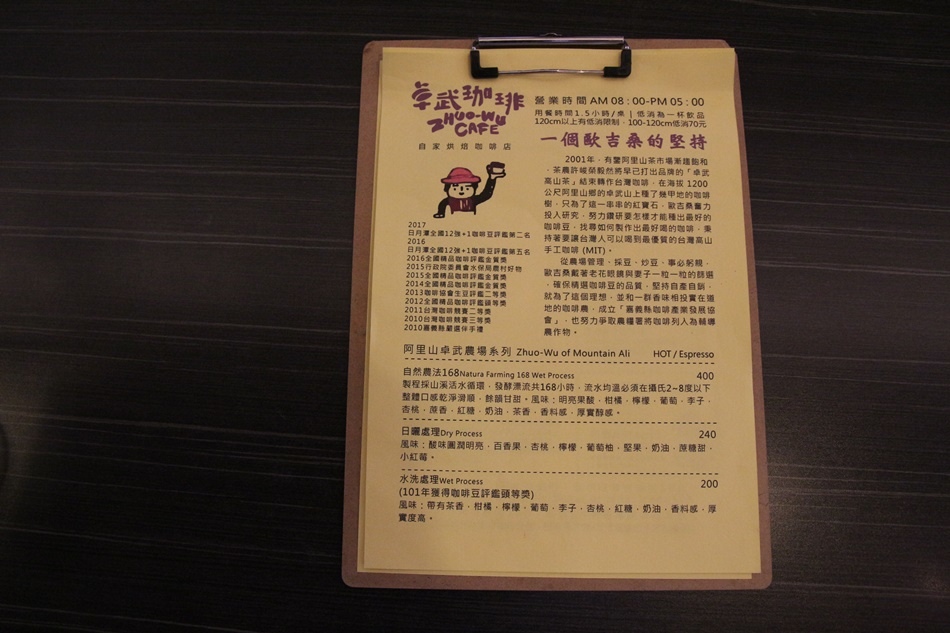 卓武珈琲
ZHUO-WU
CAFE
自家烘焙咖啡店
2017
日月潭全國12強+1咖啡豆評鑑第二名
2016
日月潭全國12強+1咖啡豆評鑑第五名
2016全國精品咖啡評鑑金質獎
2015行政院委員會水保局農村好物
2015全國精品咖啡評鑑金質獎
2014全國精品咖啡評鑑金質獎
2013咖啡協會生豆評鑑二等獎
2012全國精品咖啡評鑑頭等獎
2011台灣咖啡競賽二等獎
2010台灣咖啡競賽三等獎
2010嘉義縣嚴選伴手禮
營業時間 AM 08：00-PM 05：00
用餐時間1.5小時/桌 | 低消為一杯飲品
120cm以上有低消限制，100-120cm低消70元
一個歐吉桑的堅持
2001年，有鑒阿里山茶市場漸趨飽和
，茶農許峻榮毅然將早已打出品牌的「卓武
高山茶」結束轉作台灣咖啡，在海拔 1200
公尺阿里山鄉的卓武山上種了幾甲地的咖啡
樹，只為了這一串串的紅寶石，歐吉桑奮力
投入研究，努力鑽研要怎樣才能種出最好的
咖啡豆，找尋如何製作出最好喝的咖啡，秉
持著要讓台灣人可以喝到最優質的台灣高山
手工咖啡 (MIT)。
從農場管理、採豆、炒豆，事必躬親，
歐吉桑戴著老花眼鏡與妻子一粒一粒的篩選
，確保精選咖啡豆的品質，堅持自產自銷，
就為了這個理想，並和一群香味相投實在道
地的咖啡農，成立「嘉義縣咖啡產業發展協
會」，也努力爭取農糧署將咖啡列入為輔導
農作物。
阿里山卓武農場系列 Zhuo-Wu of Mountain Ali HOT / Espresso
自然農法168Natura Farming 168 Wet Process 400
製程採山溪活水循環，發酵漂流共168小時，流水均溫必須在攝氏2~8度以下
整體口感乾淨滑順，餘韻甘甜。風味：明亮果酸，柑橘，檸檬，葡萄，李子，
杏桃，蔗香，紅糖，奶油，茶香，香料感，厚實醇感。
日曬處理Dry Process 240
風味：酸味圓潤明亮，百香果，杏桃，檸檬，葡萄柚，堅果，奶油，蔗糖甜，
小紅莓。
水洗處理Wet Process 200
(101年獲得咖啡豆評鑑頭等獎)
風味：帶有茶香，柑橘，檸檬，葡萄，李子，杏桃，紅糖，奶油，香料感，厚
實度高。